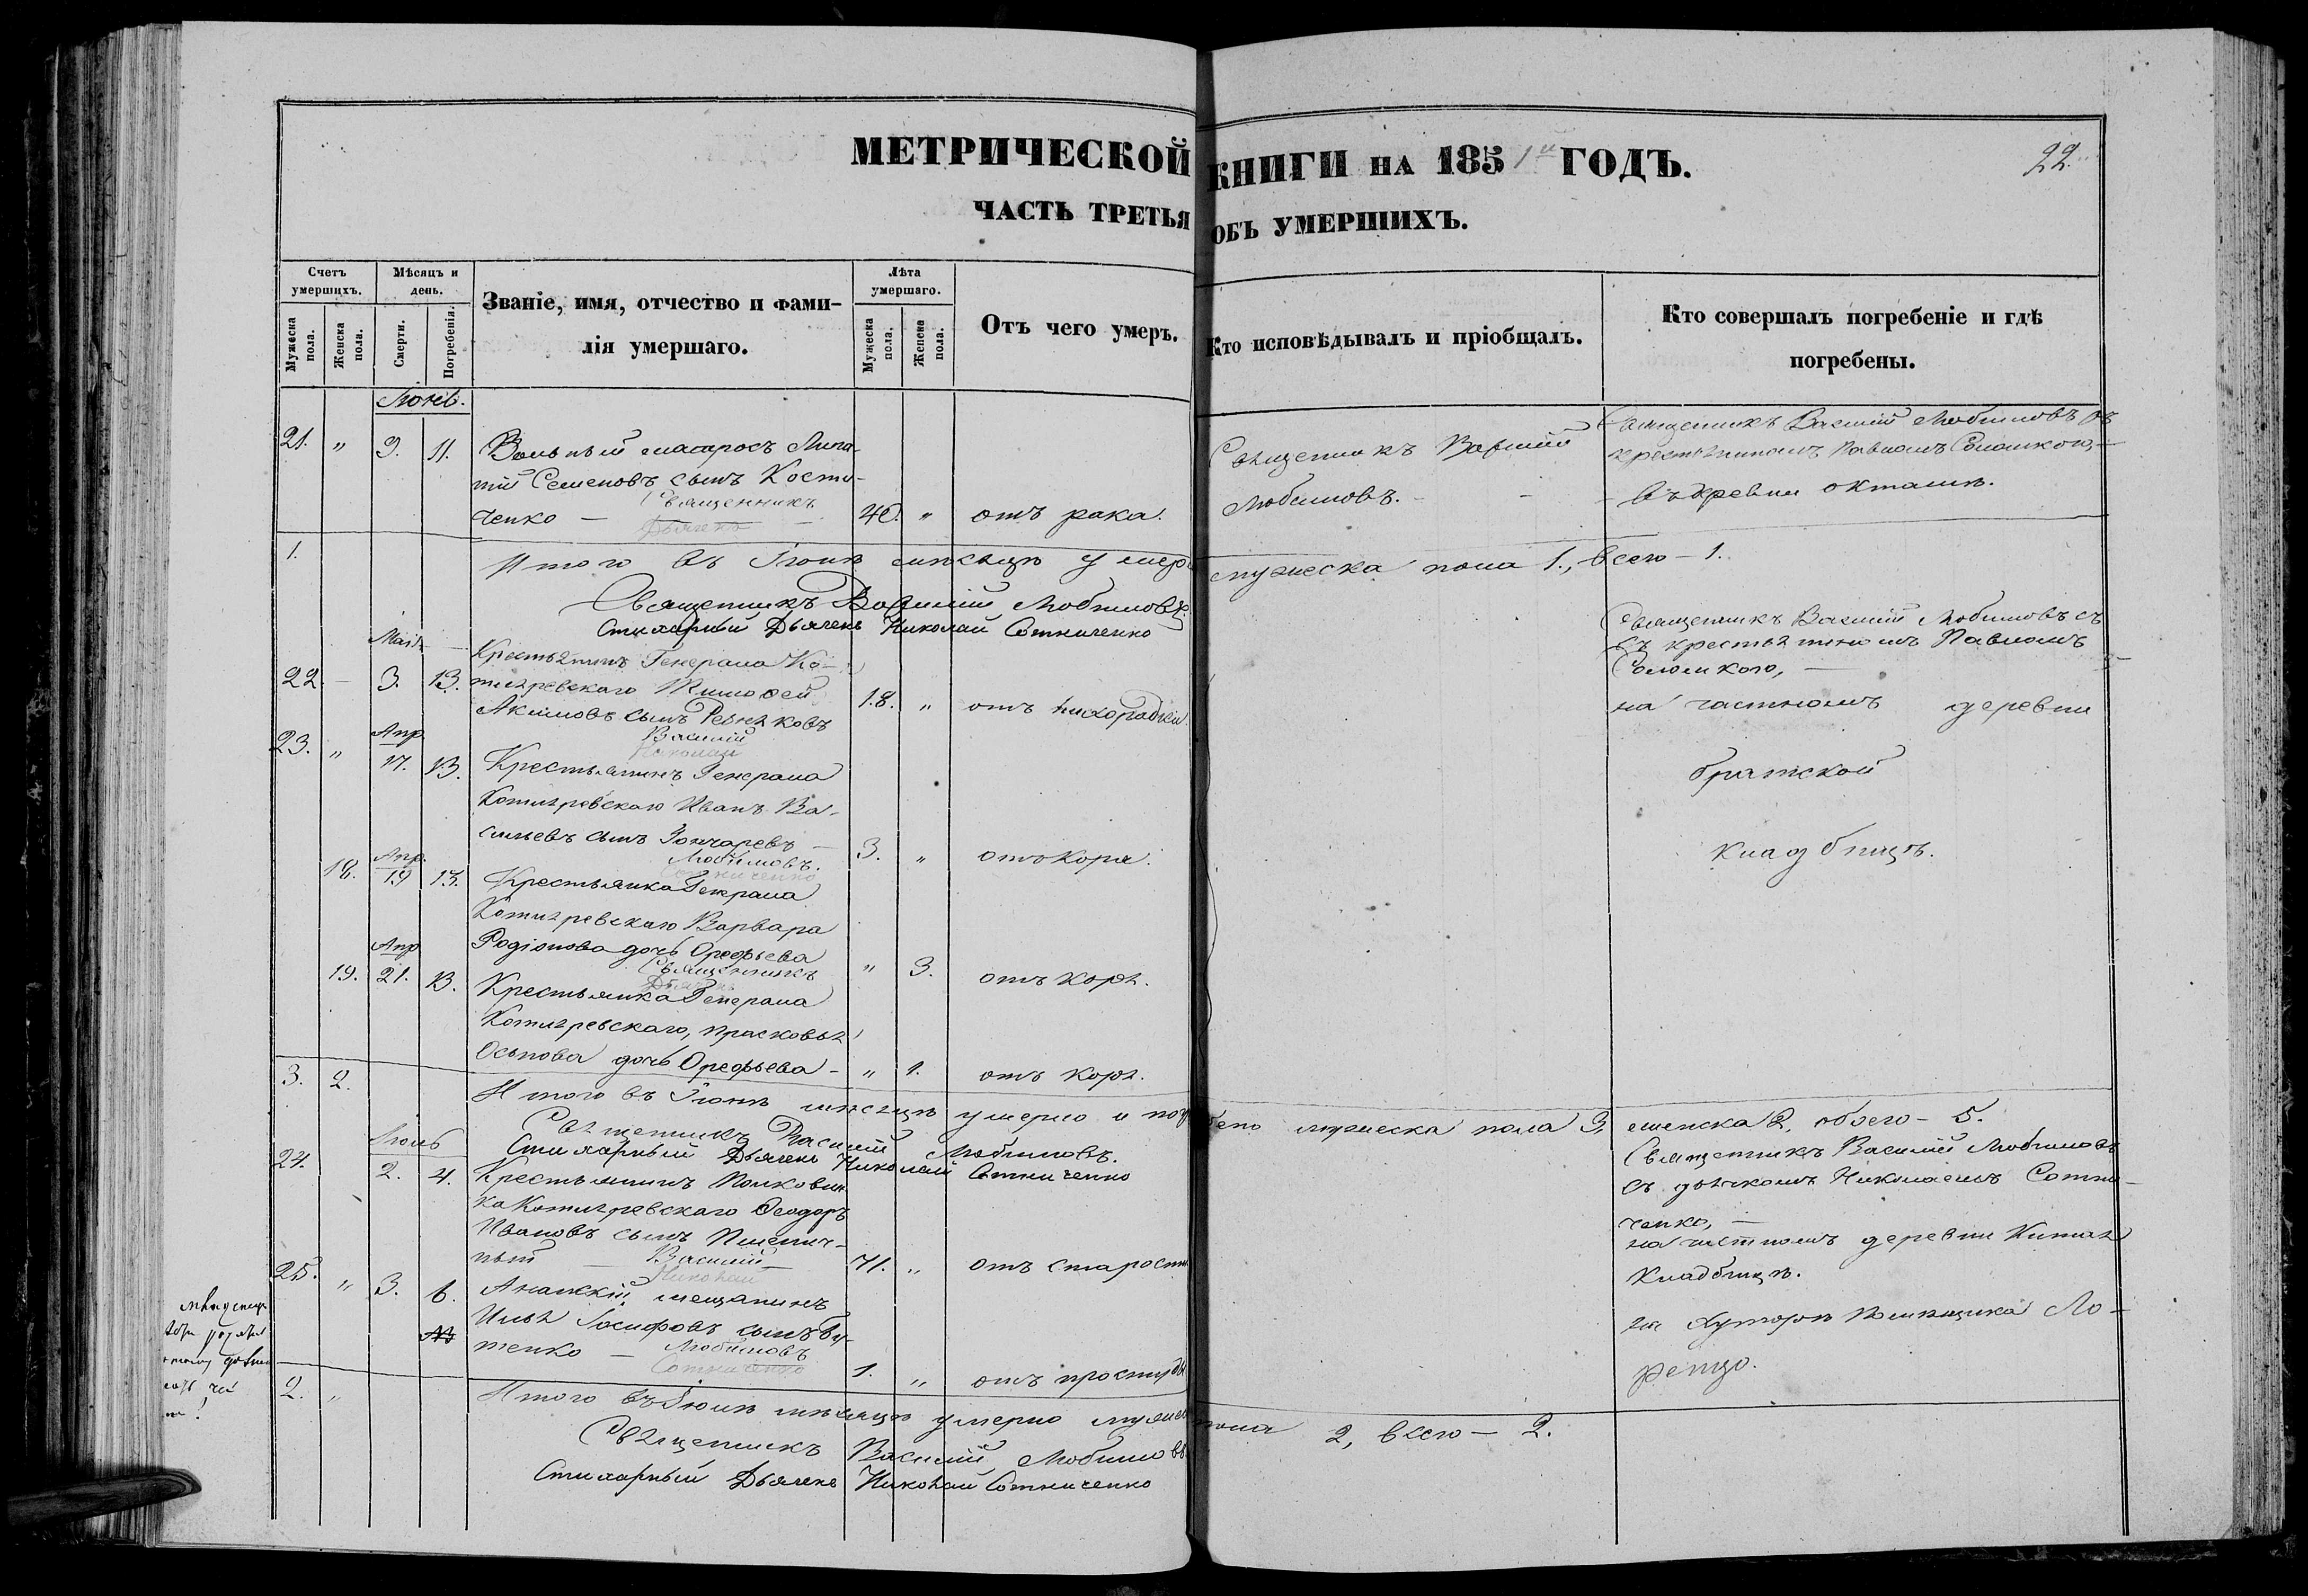 МЕТРИЧЕСКОЙ КНИГИ НА 1851й ГОДЪ.
22.
ЧАСТЬ ТРЕТЬЯ ОБЪ УМЕРШИХЪ.
Счетъ умершихъ.
Мужеска пола.
Женска пола.
Мѣсяцъ и день.
Смерти.
Погребенія.
Званіе, имя, отчество и фами-
лія умершаго.
Лѣта умершаго.
Мужеска пола.
Женска пола.
Отъ чего умеръ.
Кто исповѣдывалъ и пріобщалъ.
Кто совершалъ погребеніе и гдѣ
погребены.
Іюнь.
21. " 9. 11. Вольный матросъ Ипа-
тій Семеновъ сынъ Кости-
ченко — 40. " отъ рака.
Священникъ
Дьячекъ
Священникъ Василій
Любимовъ.
Священникъ Василій Любимовъ съ
крестьяниномъ Павломъ
въ деревни
1.
Итого въ Іюнѣ мѣсяцѣ умер мужеска пола 1., всего — 1.
Священникъ Василій Любимовъ.
Стихарный Дьячекъ Николай Сотниченко
Май
22. — 3. 13. Крестьянинъ Генерала Ко-
тляревскаго Тимофей
Акимовъ сынъ 18. " отъ лихорадки
Священникъ Василій Любимовъ съ
съ крестьяниномъ Павломъ
на частномъ деревни
братской
кладбищѣ.
Апр.
23. " 17. 13. Крестьянинъ Генерала
Василій
Николай
Котляревскаго Иванъ Ва-
сильевъ сынъ Гончаревъ — 3. " отъ кори.
Любимовъ.
Сотниченко
Апр.
18. 19 13. Крестьянка Генерала
Котляревскаго Варвара
Родіонова дочь Орефьева " 3. отъ коря.
Священникъ
Дьячекъ
Апр.
19. 21. 13. Крестьянка Генерала
Котляревскаго, Прасковья
Осипова дочь Орефьева — " 1. отъ коря.
3. 2.
Итого въ Іюнѣ мѣсяцѣ умерло и погребено мужеска пола 3, женска 2, обоего — 5.
Священникъ Василій Любимовъ.
Стихарный Дьячекъ Николай Сотниченко
Іюль
24. 2. 4. Крестьянинъ Полковни-
ка Котляревскаго Ѳеодоръ
Ивановъ сынъ Пшенич-
ный — 71. " отъ старости
Василій
Николай
Священникъ Василій Любимовъ
съ дьячкомъ Николаемъ Сотни-
ченко, —
на частномъ деревни Китая
кладбищѣ.
25. " 3. 6. Ананскій мещанинъ
Илья Іосифовъ сынъ
тенко — 1. " отъ простуды
Любимовъ
Сотниченко
на хуторѣ помѣщика Ло-
ренцо.
2. "
Итого въ Іюлѣ мѣсяцѣ умерло мужеска пола 2, всего — 2.
Священникъ Василій Любимовъ
Стихарный Дьячекъ Николай Сотниченко